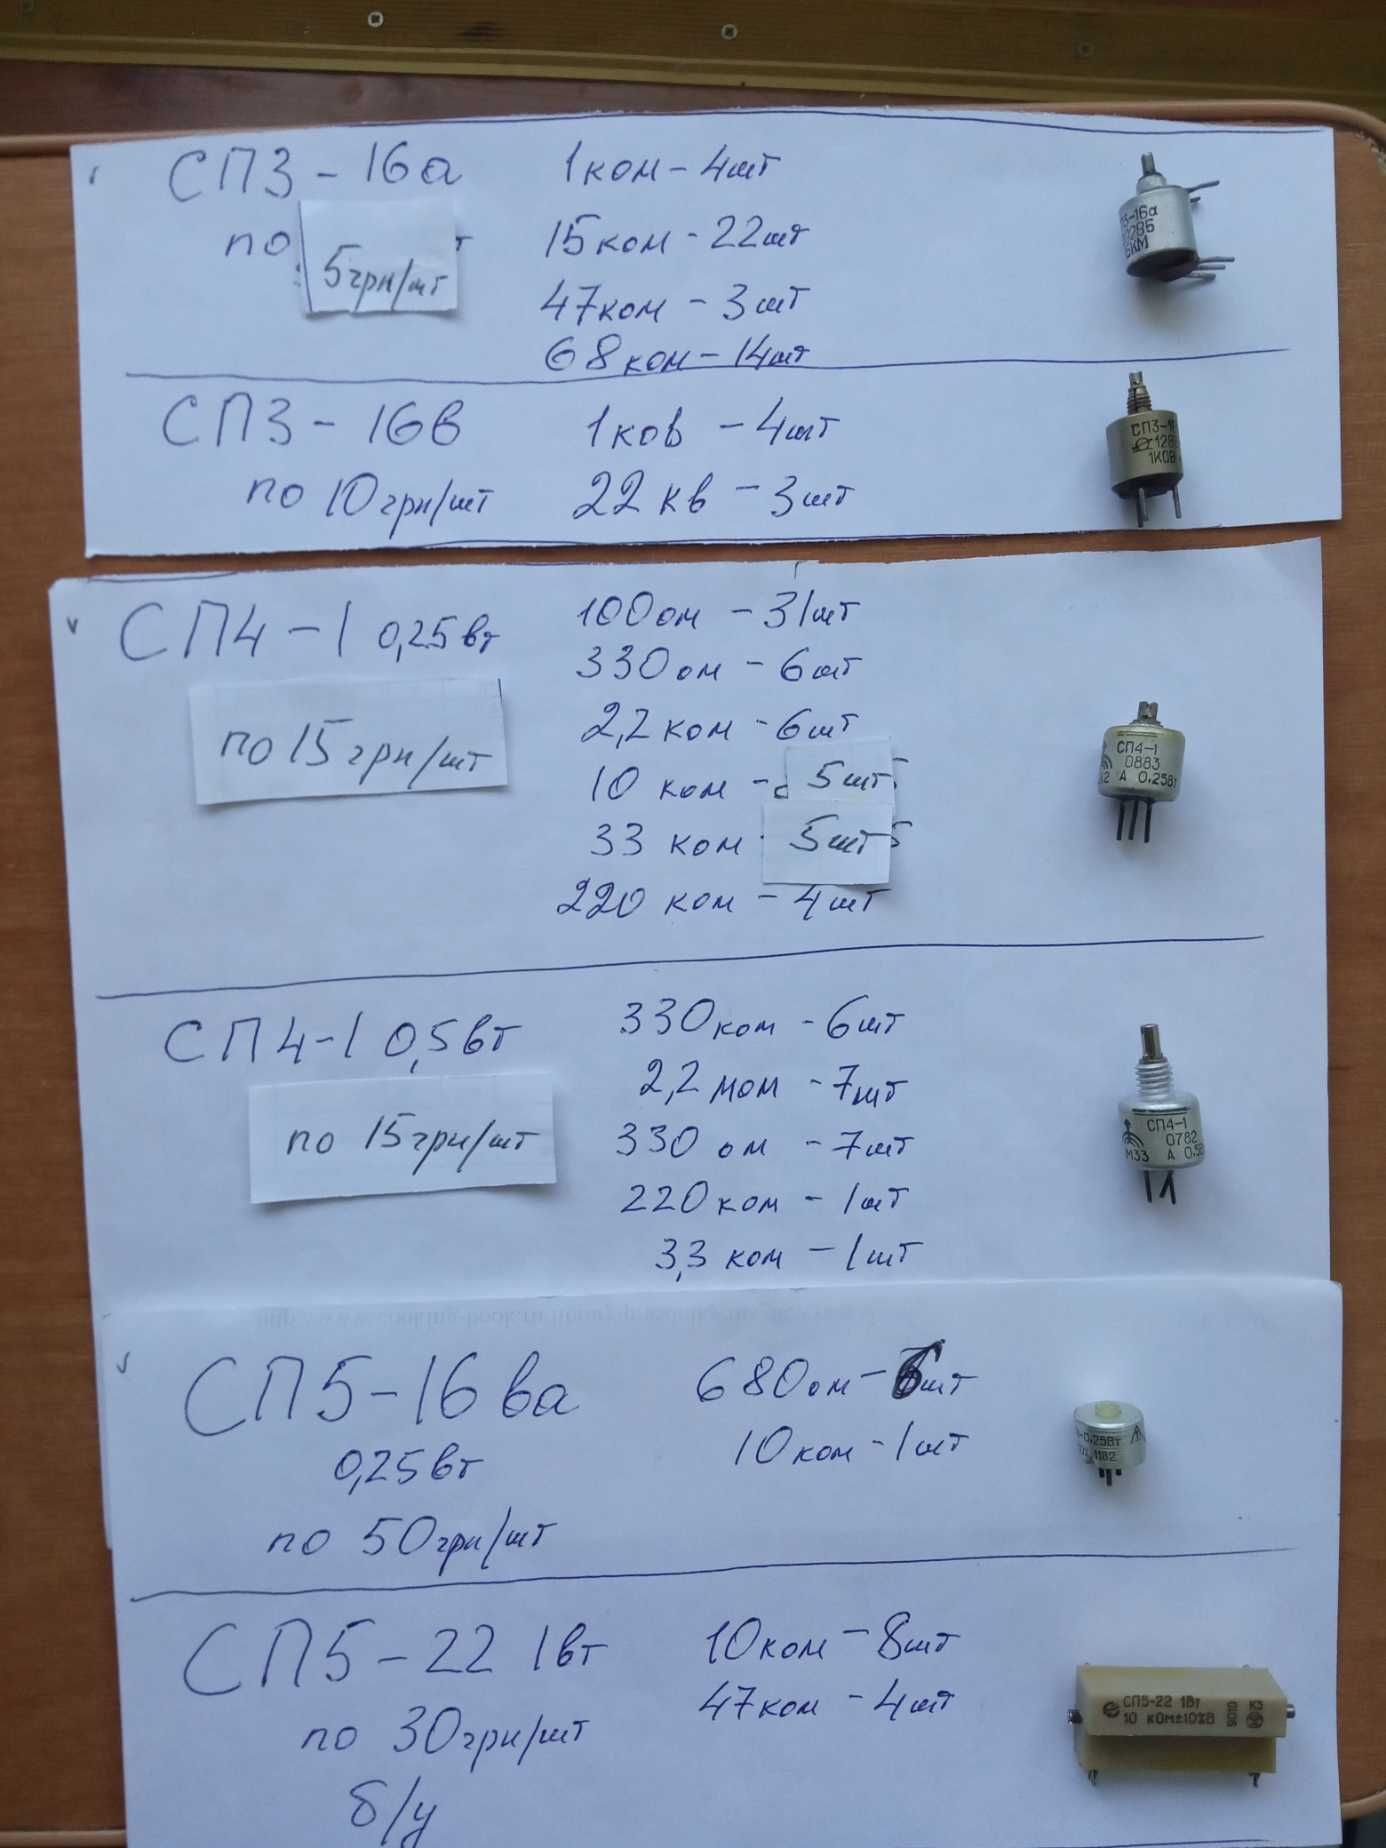 СП3-16а
по 5грн/шт
1ком-4шт
15ком-22шт
47ком-3шт
68ком-14шт
3-16а
СП3-16в
по 10грн/шт
1ков-4шт
22кв-3шт
СП3-1
1КОВ
СП4-1 0,25вт
по 15грн/шт
100ом-31шт
330ом-6шт
2,2ком-6шт
10 ком-5шт
33 ком 5шт
220 ком-4шт
СП4-1
0883
А 0,25Вт
СП4-1 0,5вт
по 15грн/шт
330ком-6шт
2,2мом-7шт
330 ом-7шт
220ком-1шт
3,3 ком-1шт
СП4-1
0782
М33 А 0,5
СП5-16ва
0,25вт
по 50грн/шт
680ом-6шт
10ком-1шт
-0,25Вт
1182
СП5-22 1вт
по 30грн/шт
б/у
10ком-8шт
47ком-4шт
СП5-22 1Вт
10 кОм±10%В